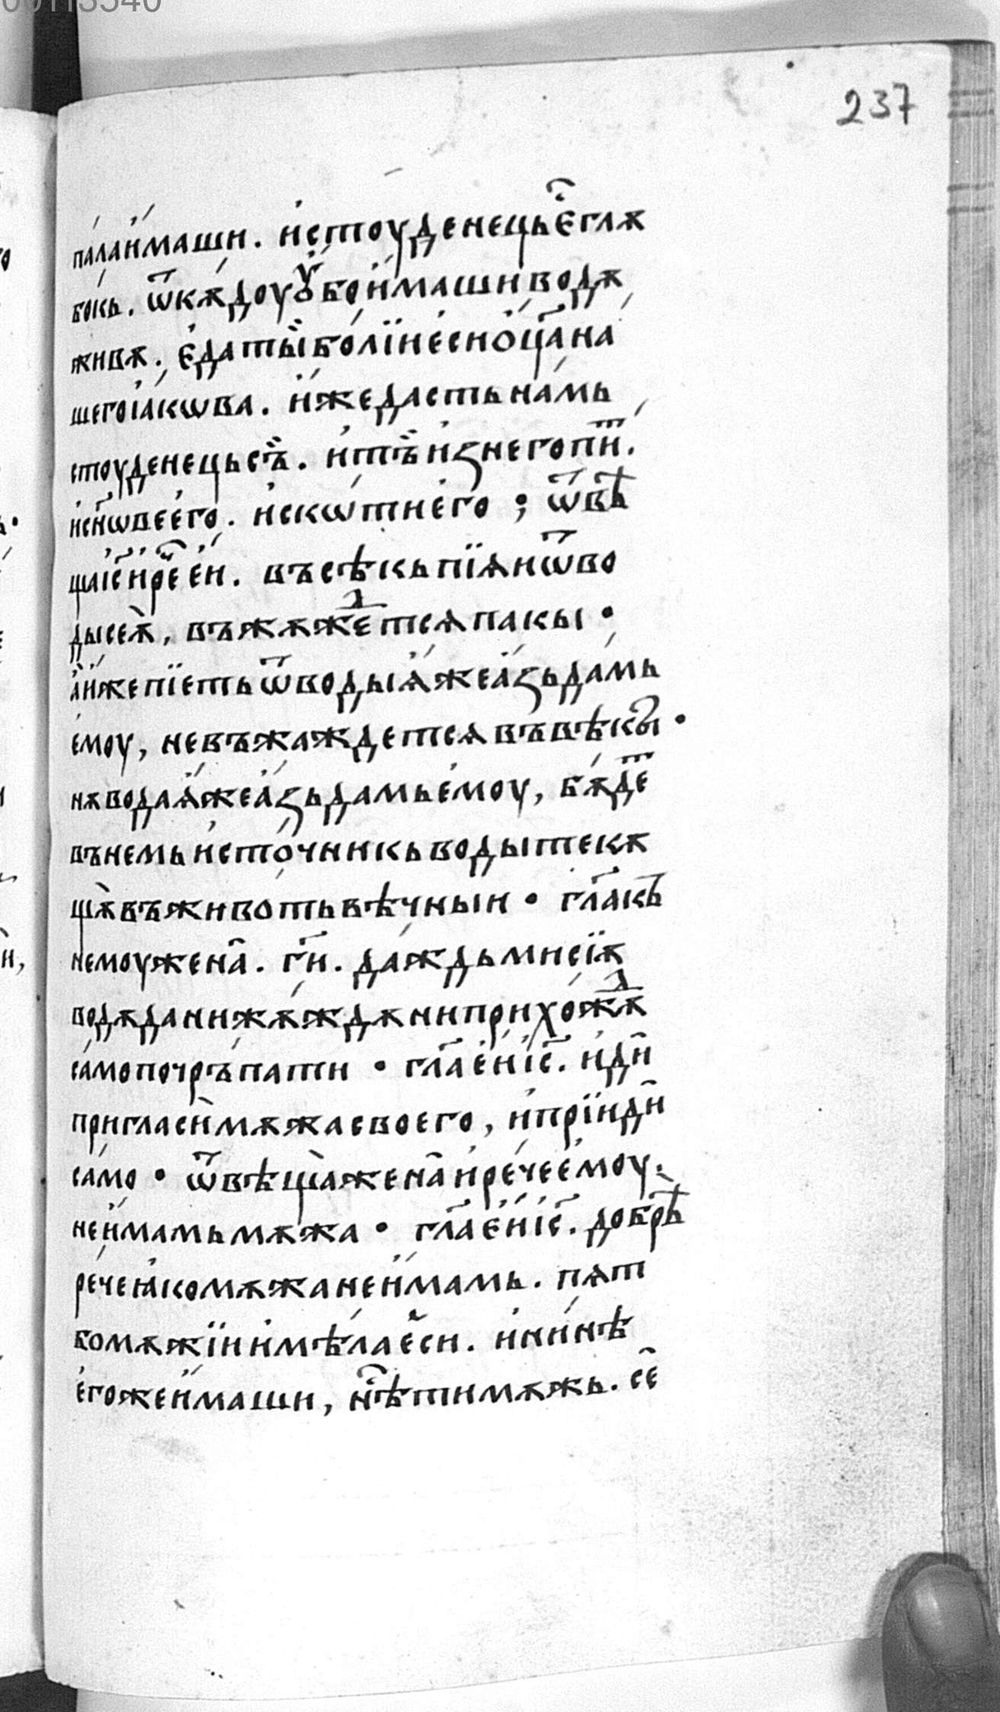 237
пала имаши. и стоуденець е҆сть глѫ
бокь. ѿкѫдоу ѹбо имаши водѫ
живѫ. е҆да ты̀ болїи еси ѻ҆ц҃а на
шего іакѡва. иже дасть намь
стоуденець съ. и тъ из него пит.
и сн҃ѡве его. и скѡти его ; ѿвѣ
ща іс҃ и рч҃е еи. въсѣкь пїѧи ѿ во
ды сеѫ, въжѫждетсѧ пакы ·
а иже пїеть ѿ воды ѧже азь дамь
емоу, не въжаждетсѧ въ вѣкы ·
нѫ вода ѧже азь дамь емоу, бѫдет
въ немь источникь воды текѫ
щѫ въ животь вѣчныи · гл҃а кь
немоу жена. г҃и. даждь ми сїѫ
водѫ да ни жѫждѫ ни прихождѫ
само почръпати · гл҃а еи іс҃. иди
пригласи мѫжа своего, и прїиди
само · ѿвѣща жена и рече емоу.
не имамь мѫжа · гл҃а еи іс҃. добрѣ
рече ꙗко мѫжа не имамь. пѧт
бо мѫжїи имѣла еси. и нинѣ
егоже имаши, нѣс҃ ти мѫжь. се